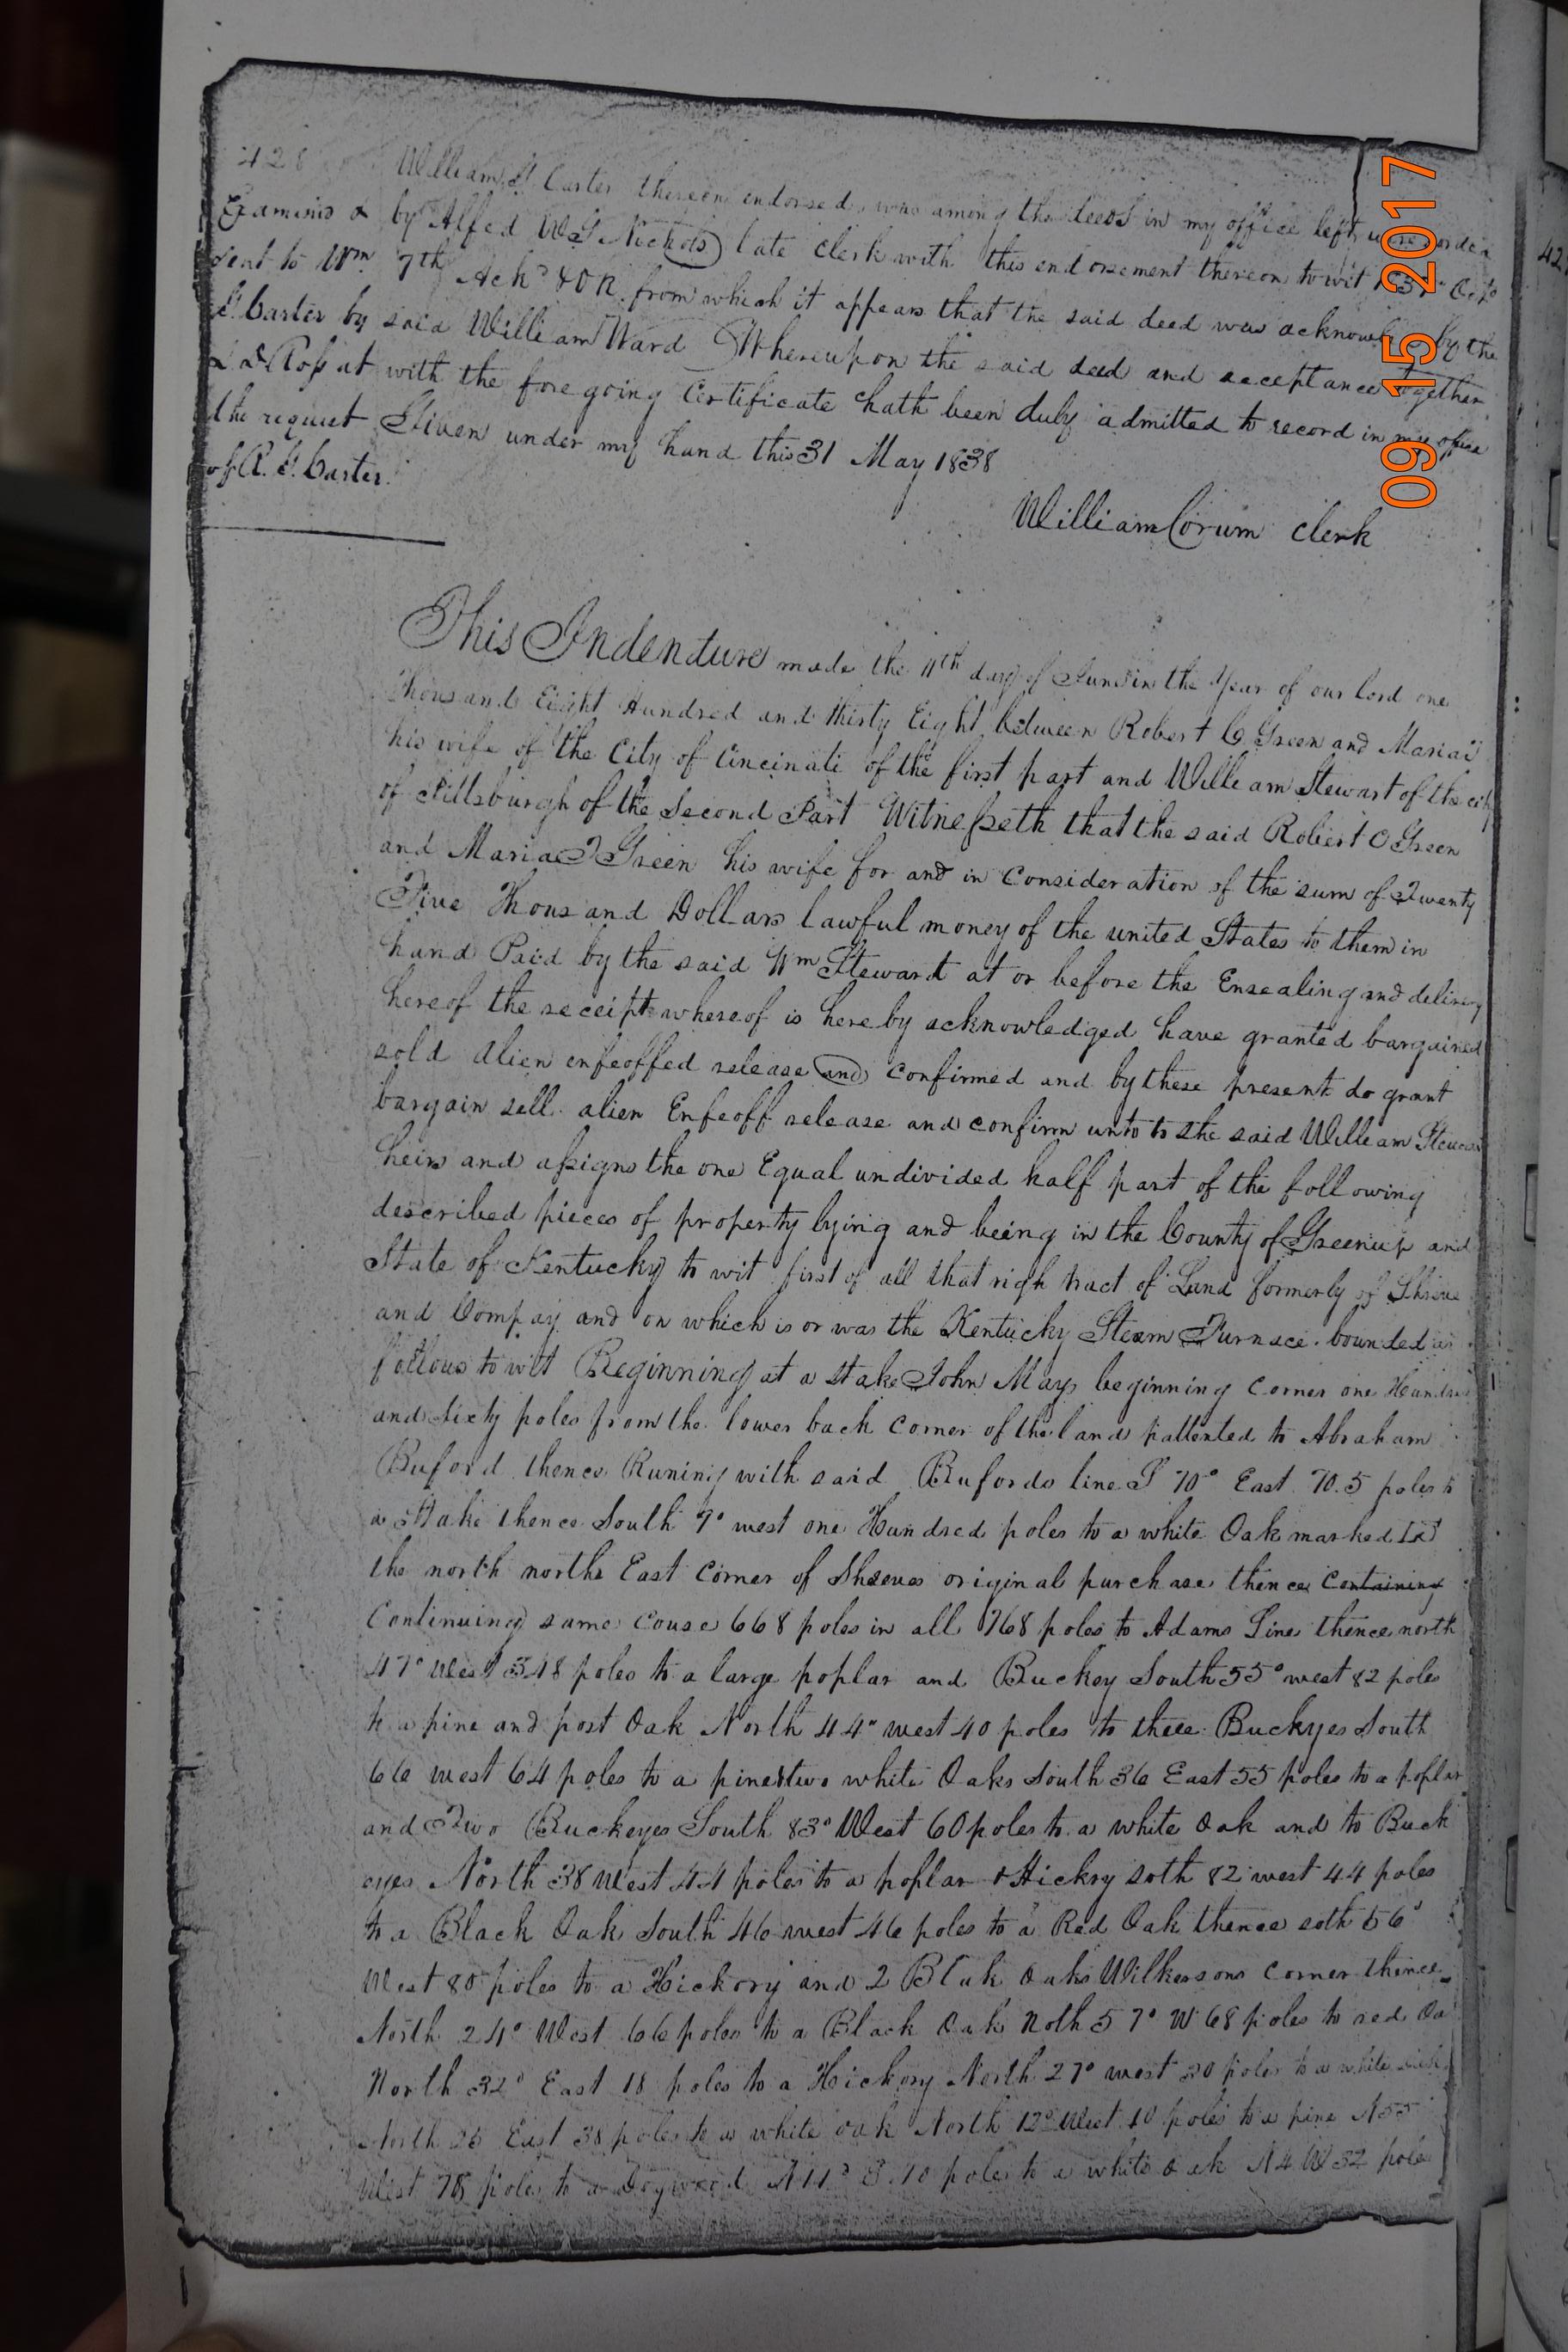 428 William S Carter thereon endorsed, was among the deeds in my office left
Examined & by Alfred W G Nickols late clerk with this endorsement thereon to wit
sent to Wm 7th Ackd & OR. from which it appears that the said deed was acknowledged by the
S. Carter by said William Ward Whereupon the said deed and acceptance together
with the foregoing Certificate hath been duly admitted to record in my office
the request Given under my hand this 31 May 1838
of R. S. Carter.
William Corum Clerk
This Indenture made the 11th day of June in the Year of our lord one
Thousand Eight Hundred and thirty Eight between Robert C Green and Maria
his wife of the City of Cincinati of the first part and William Stewart of the city
of Pittsburgh of the Second Part Witnesseth that the said Robert C Green
and Maria Green his wife for and in Consideration of the sum of Twenty
Five Thousand Dollars lawful money of the united States to them in
hand Paid by the said Wm Steward at or before the Ensealing and delivery
hereof the receipt whereof is hereby acknowledged have granted bargained
sold alien enfeoffed release and confirmed and by these present do grant
bargain sell alien Enfeoff release and confirm unto to the said William Stewart
heirs and assigns the one Equal undivided half part of the following
described pieces of property lying and being in the County of Greenup and
State of Kentucky to wit first of all that righ tract of Land formerly of Shreve
and Compay and on which is or was the Kentucky Steam Furnace bounded as
follows to wit Beginning at a stake John Mays beginning Corner one Hundred
and sixty poles from the lower back Corner of the land pattented to Abraham
Buford thence Runing with said Bufords line S 70° East 70.5 poles to
a Stake thence South 7° west one Hundred poles to a white Oak marked
the north northe East Corner of Shreves original purchase thence Containing
Continuing same couse 668 poles in all 768 poles to Adams Line thence north
47° West 348 poles to a large poplar and Buckey South 55° west 82 poles
to a pine and post Oak North 44° west 40 poles to three Buckyes South
66 west 64 poles to a pine & two white Oaks South 36 East 55 poles to a poplar
and Two Buckeyes South 83° West 60 poles to a white Oak and to Buck
eyes North 38 West 44 poles to a poplar & Hickry soth 82 west 44 poles
to a Black Oak South 46 west 46 poles to a Red Oak thence soth 56°
West 80 poles to a Hickory and 2 Blak Oaks Wilkersons Corner thence
North 24° West 66 poles to a Black Oak Noth 57° W 68 poles to red Oa
North 32° East 18 poles to a Hickory North 27° west 20 poles to a white oak
North 26 East 38 poles to a white oak North 12° West 10 poles to a pine N 55
West 78 poles to a Dogwood N 11° E 10 poles to a white oak N 4 W 32 poles
09 15 2017